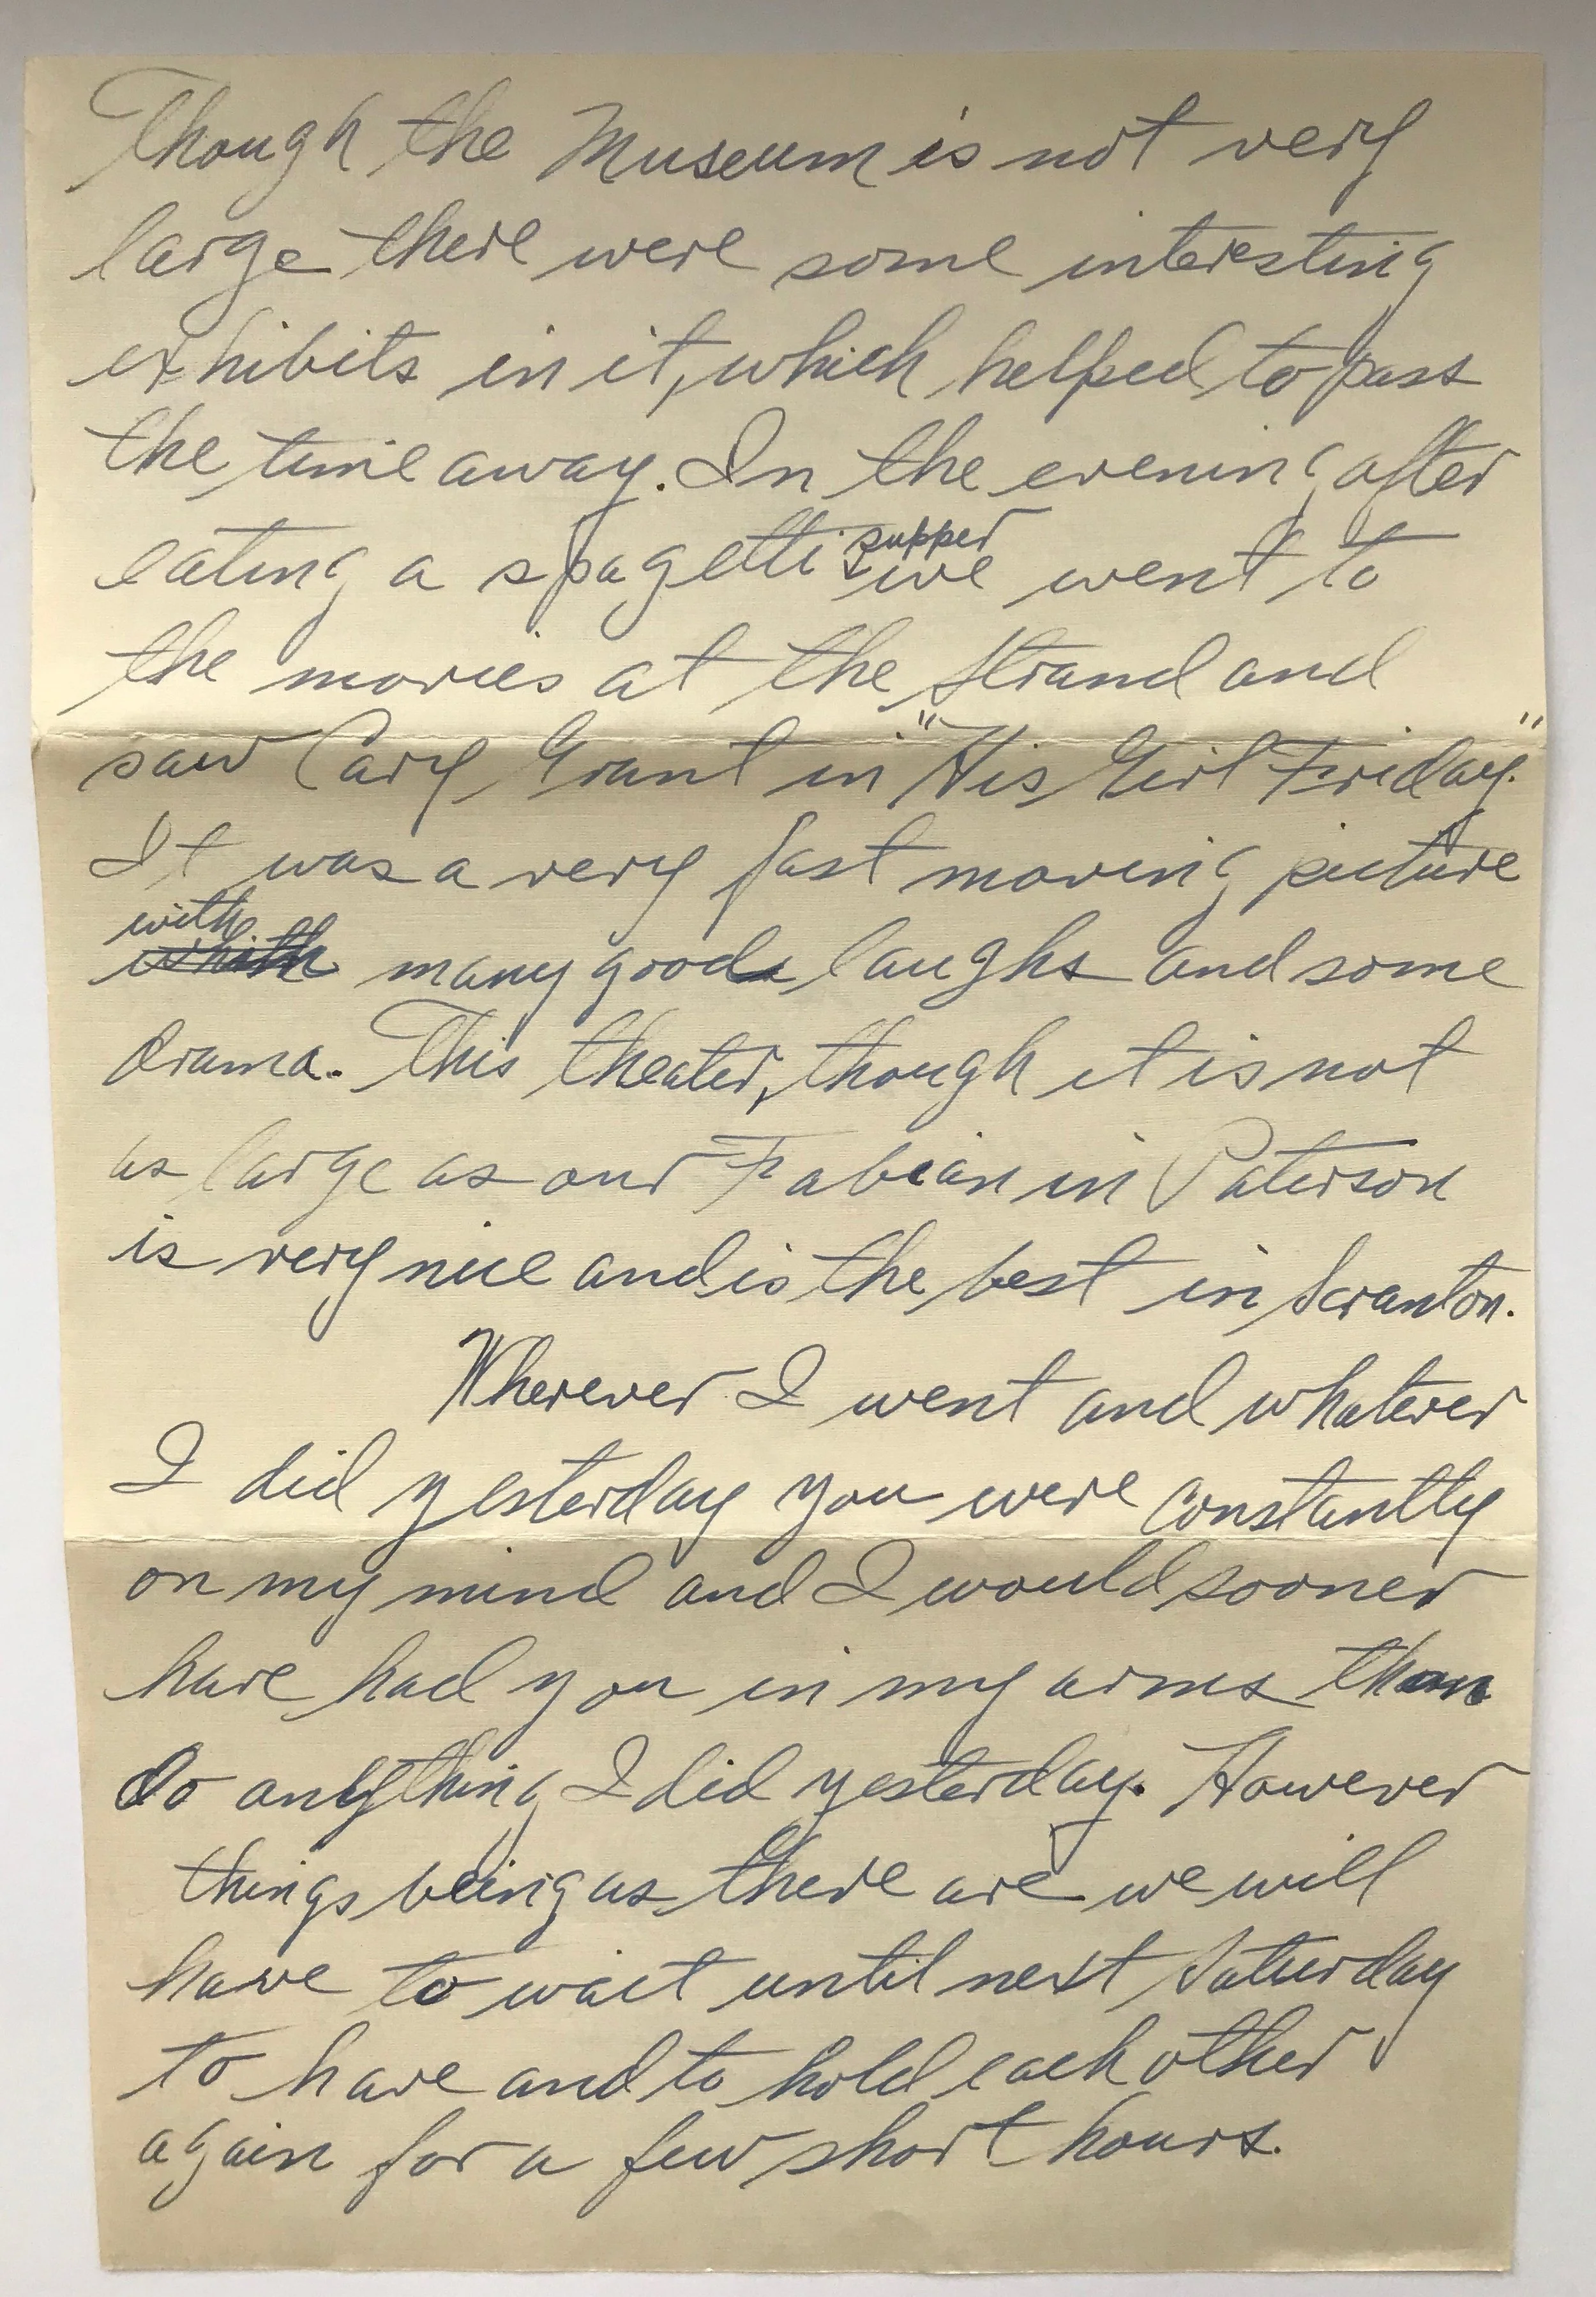 Though the Museum is not very
large there were some interesting
exhibits in it, which helped to pass
the time away. In the evening after
eating a spagetti supper we went to
the movies at the Strand and
saw Cary Grant in "His Girl Friday."
It was a very fast moving picture
with many good laughs and some
drama. This theater, though it is not
as large as our Fabian in Paterson
is very nice and is the best in Scranton.
Wherever I went and whatever
I did yesterday you were constantly
on my mind and I would sooner
have had you in my arms than
do anything I did yesterday. However
things being as there are we will
have to wait until next Saturday
to have and to hold each other
again for a few short hours.